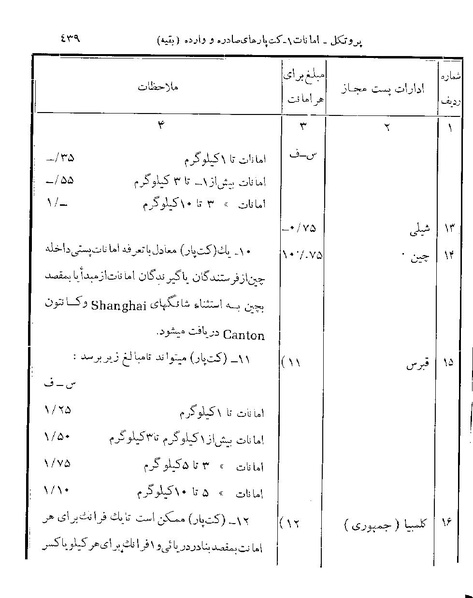 پروتکل ـ امانات ۱ـ کت پارهای صادره و وارده (بقیه) ۴۳۹
شماره ردیف ادارات پست مجاز مبلغ برای هر امانت ملاحظات
۱ ۲ ۳ ۴
س ـ ف
امانات تا ۱ کیلوگرم ۳۵/ـ
امانات بیش از ۱ـ تا ۳ کیلوگرم ۵۵/ـ
امانات » ۳ تا ۱۰ کیلوگرم ـ/۱
۱۳ شیلی ۰/۷۵ـ
۱۴ چین ۷۵ـ/۱۰۰ ۱۰ـ یك (کت پار) معادل با تعرفه امانات پستی داخله
چین از فرستندگان یا گیرندگان امانات از مبدأ یا بمقصد
بچین بـه استثناء شانگهای Shanghai و کانتون
Canton دریافت میشود.
۱۵ قبرس (۱۱ ۱۱ـ (کت پار) میتواند تامبالغ زیر برسد :
س ـ ف
امانات تا ۱ کیلوگرم ۱/۲۵
امانات بیش از ۱ کیلوگرم تا ۳ کیلوگرم ۱/۵۰
امانات » ۳ تا ۵ کیلوگرم ۱/۷۵
امانات » ۵ تا ۱۰ کیلوگرم ۱/۱۰
۱۶ کلمبیا ( جمهوری ) (۱۲ ۱۲ـ (کت پار) ممکن است تا یك فرانك برای هر
امانت بمقصد بنادر دریائی و ۱ فرانك برای هر کیلو یا کسر